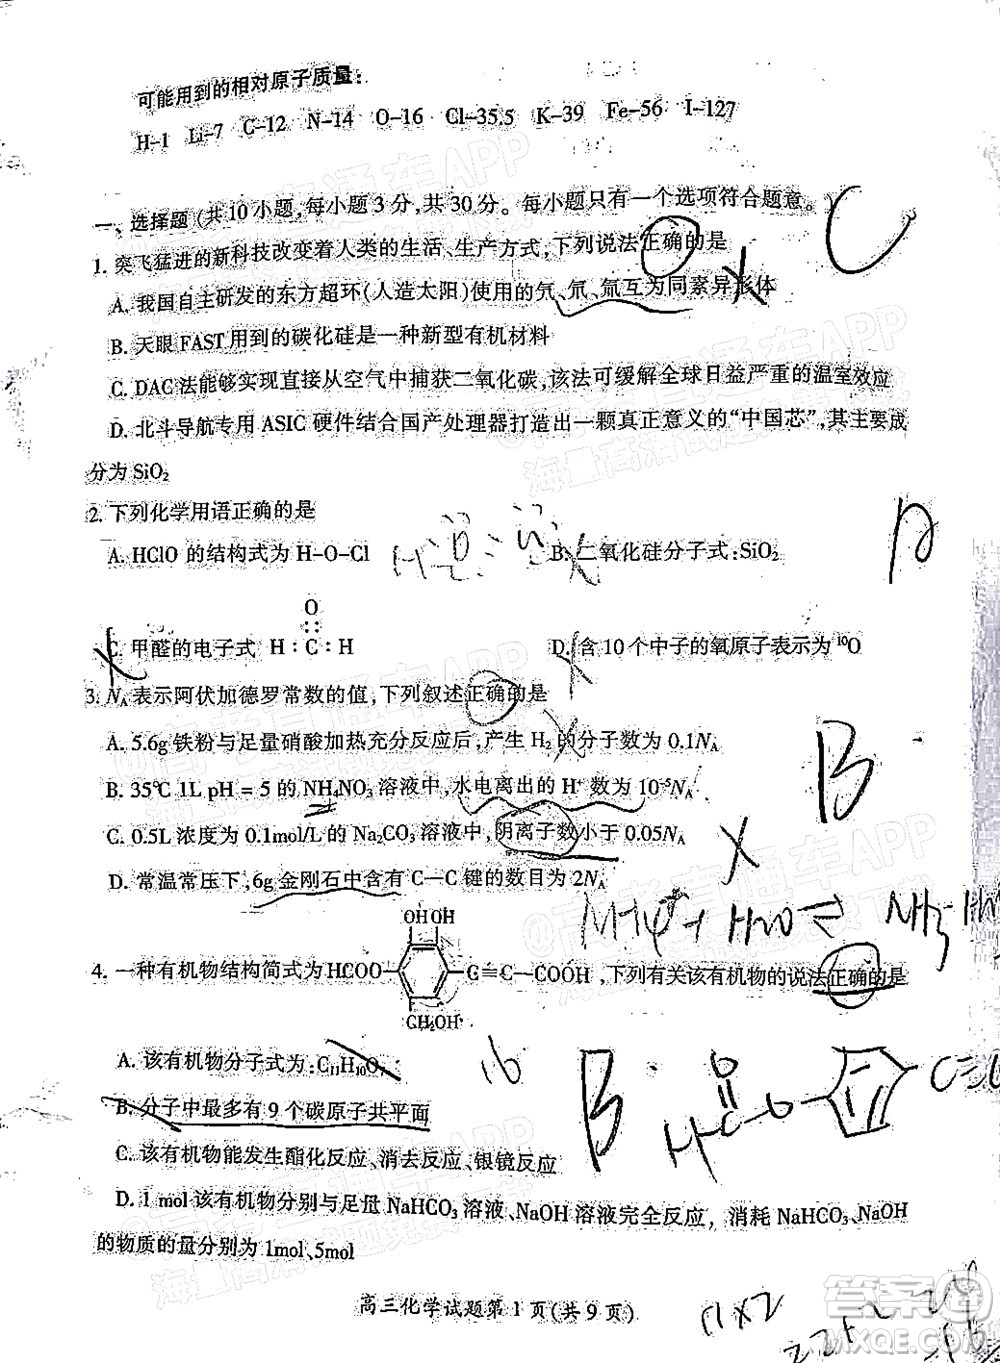 可能用到的相对原子质量:
H-1 Li-7 C-12 N-14 O-16 Cl-35.5 K-39 Fe-56 I-127
一、选择题(共10小题,每小题3分,共30分。每小题只有一个选项符合题意。
C
1. 突飞猛进的新科技改变着人类的生活、生产方式,下列说法正确的是
A. 我国自主研发的东方超环(人造太阳)使用的氕、氘、氚互为同素异形体
B. 天眼FAST用到的碳化硅是一种新型有机材料
C. DAC法能够实现直接从空气中捕获二氧化碳,该法可缓解全球日益严重的温室效应
D. 北斗导航专用ASIC硬件结合国产处理器打造出一颗真正意义的“中国芯”,其主要成
分为SiO₂
2. 下列化学用语正确的是
A. HClO的结构式为H-O-Cl B. 二氧化硅分子式:SiO₂
O
C. 甲醛的电子式 H:C:H D. 含10个中子的氧原子表示为¹⁰O
3. Nₐ表示阿伏加德罗常数的值,下列叙述正确的是
A. 5.6g铁粉与足量硝酸加热充分反应后,产生H₂的分子数为0.1Nₐ
B
B. 35℃ 1L pH = 5的NH₄NO₃溶液中,水电离出的H⁺数为10⁻⁵Nₐ
C. 0.5L浓度为0.1mol/L的Na₂CO₃溶液中,阴离子数小于0.05Nₐ
D. 常温常压下,6g金刚石中含有C—C键的数目为2Nₐ
NH₄⁺+H₂O⇌NH₃·H
OHOH
4. 一种有机物结构简式为HCOO C≡C—COOH,下列有关该有机物的说法正确的是
CH₂OH
A. 该有机物分子式为:C₁₁H₁₀O₇
16
B
B. 分子中最多有9个碳原子共平面
C. 该有机物能发生酯化反应、消去反应、银镜反应
D. 1 mol该有机物分别与足量NaHCO₃溶液、NaOH溶液完全反应,消耗NaHCO₃、NaOH
的物质的量分别为1mol、5mol
高三化学试题第1页(共9页)
11×2
22+2
答案圈
MXQE.COM